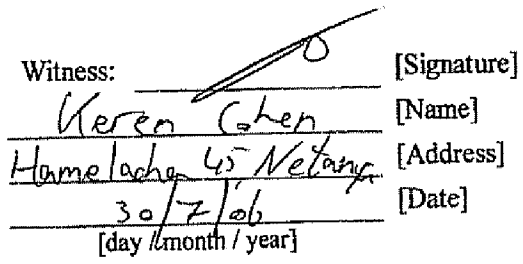 Witness: [Signature]
Keren Cohen [Name]
Hamelacha 45 Netanya [Address]
30/7/06 [Date]
[day / month / year]